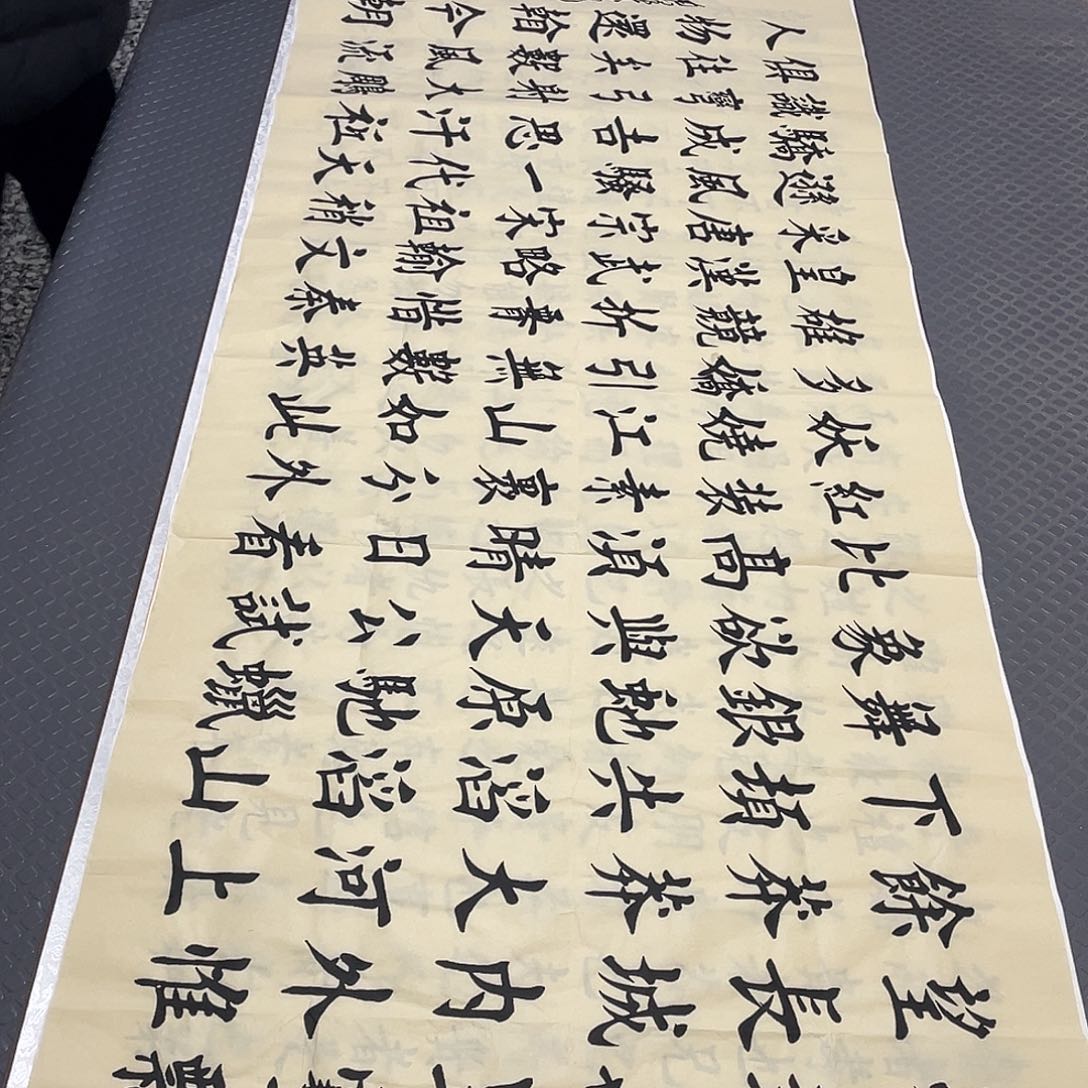 望長城內外惟
餘莽莽大河上
下頓失滔滔山
舞銀蛇原馳蠟
象欲與天公試
比高須晴日看
紅裝素裹分外
妖嬈江山如此
多嬌引無數英
雄競折腰惜秦
皇漢武略輸文
采唐宗宋祖稍
遜風騷一代天
驕成吉思汗祗
識彎弓射大鵰
俱往矣數風流
人物還看今朝